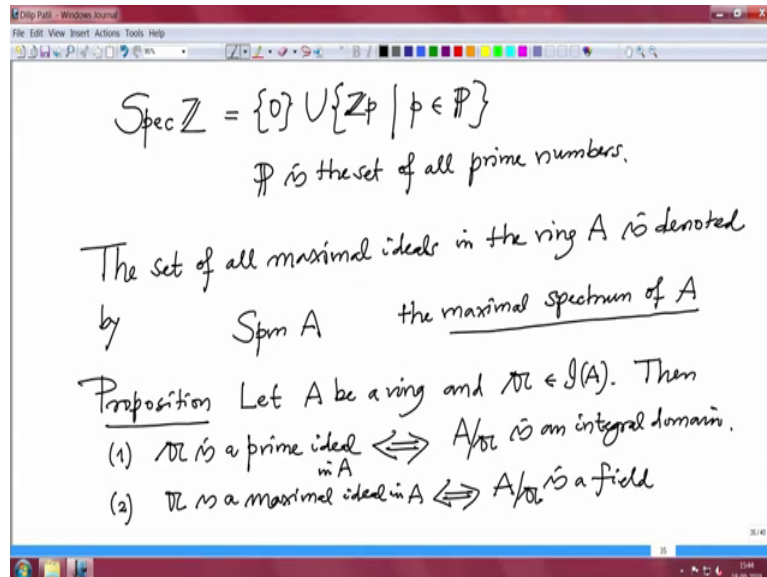 Dilip Patil - Windows Journal
File Edit View Insert Actions Tools Help
Spec ℤ = {0} ∪ {ℤp | p ∈ ℙ}
ℙ is the set of all prime numbers.
The set of all maximal ideals in the ring A is denoted
by Spm A the maximal spectrum of A
Proposition Let A be a ring and 𝔞 ∈ 𝓘(A). Then
(1) 𝔞 is a prime ideal in A ⟺ A/𝔞 is an integral domain.
(2) 𝔞 is a maximal ideal in A ⟺ A/𝔞 is a field
35/40
35
15:44